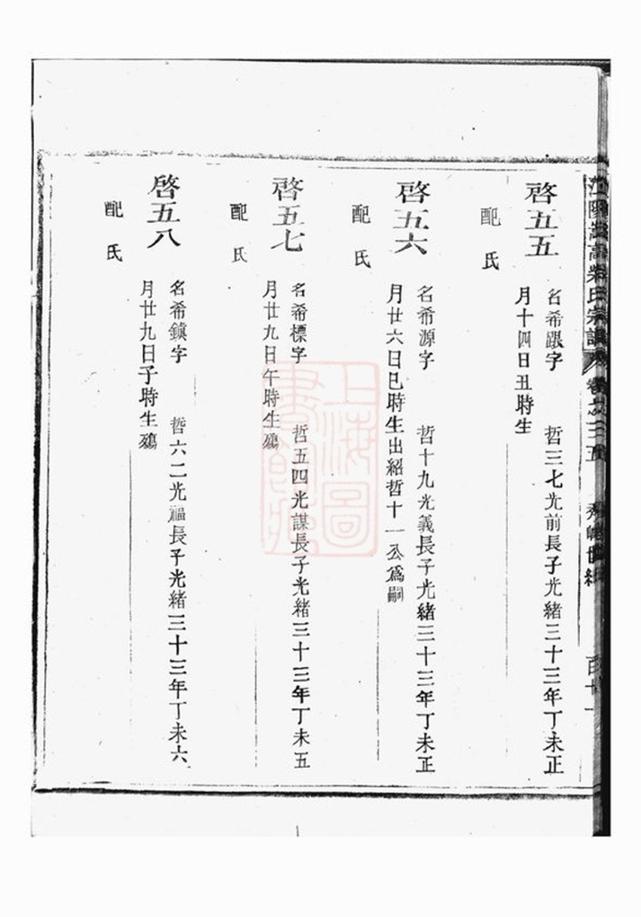 啓五五
名希跟字　哲三七光前長子光緒三十三年丁未正
月十四日丑時生
配　氏
啓五六
名希源字　哲十九光義長子光緒三十三年丁未正
月廿六日巳時生出紹哲十一公爲嗣
配　氏
啓五七
名希標字　哲五四光謀長子光緒三十三年丁未五
月廿九日午時生殤
配　氏
啓五八
名希鎮字　哲六二光福長子光緒三十三年丁未六
月廿九日子時生殤
配　氏
氏宗譜
卷之三五
上海圖書館藏